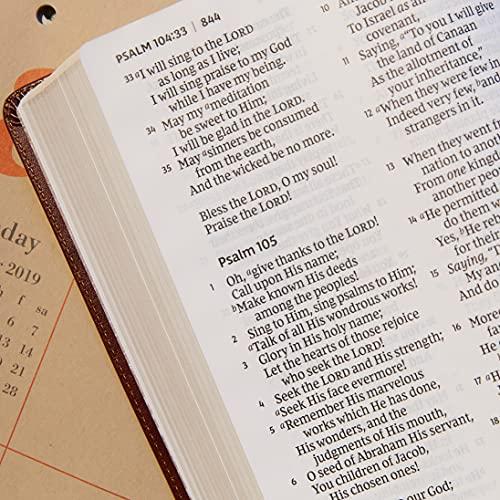 PSALM 104:33 | 844
33 ᵃI will sing to the LORD
as long as I live;
I will sing praise to my God
while I have my being.
34 May my ᵃmeditation
be sweet to Him;
I will be glad in the LORD.
35 May ᵃsinners be consumed
from the earth,
And the wicked be no more.
Bless the LORD, O my soul!
Praise the LORD!
Psalm 105
1 Oh, ᵃgive thanks to the LORD!
Call upon His name;
ᵇMake known His deeds
among the peoples!
2 Sing to Him, sing psalms to Him;
ᵃTalk of all His wondrous works!
3 Glory in His holy name;
Let the hearts of those rejoice
who seek the LORD!
4 Seek the LORD and His strength;
ᵃSeek His face evermore!
5 ᵃRemember His marvelous
works which He has done,
His wonders, and the
judgments of His mouth,
6 O seed of Abraham His servant,
You children of Jacob,
our God;
10
Jacob for
To Israel as
covenant,
11 Saying, ᵃ"To you I will give
the land of Canaan
As the allotment of
your inheritance,"
12 ᵃWhen they were few in
Indeed very few, ᵇand
strangers in it.
13 When they went
nation to another
From one king
another people
14 ᵃHe permitted
do them
Yes, ᵇHe
their
15 Saying, "
My an
And do
16 Moreo
17 ᵃHe
day
2019
f sa
6 7
13 14
21
28